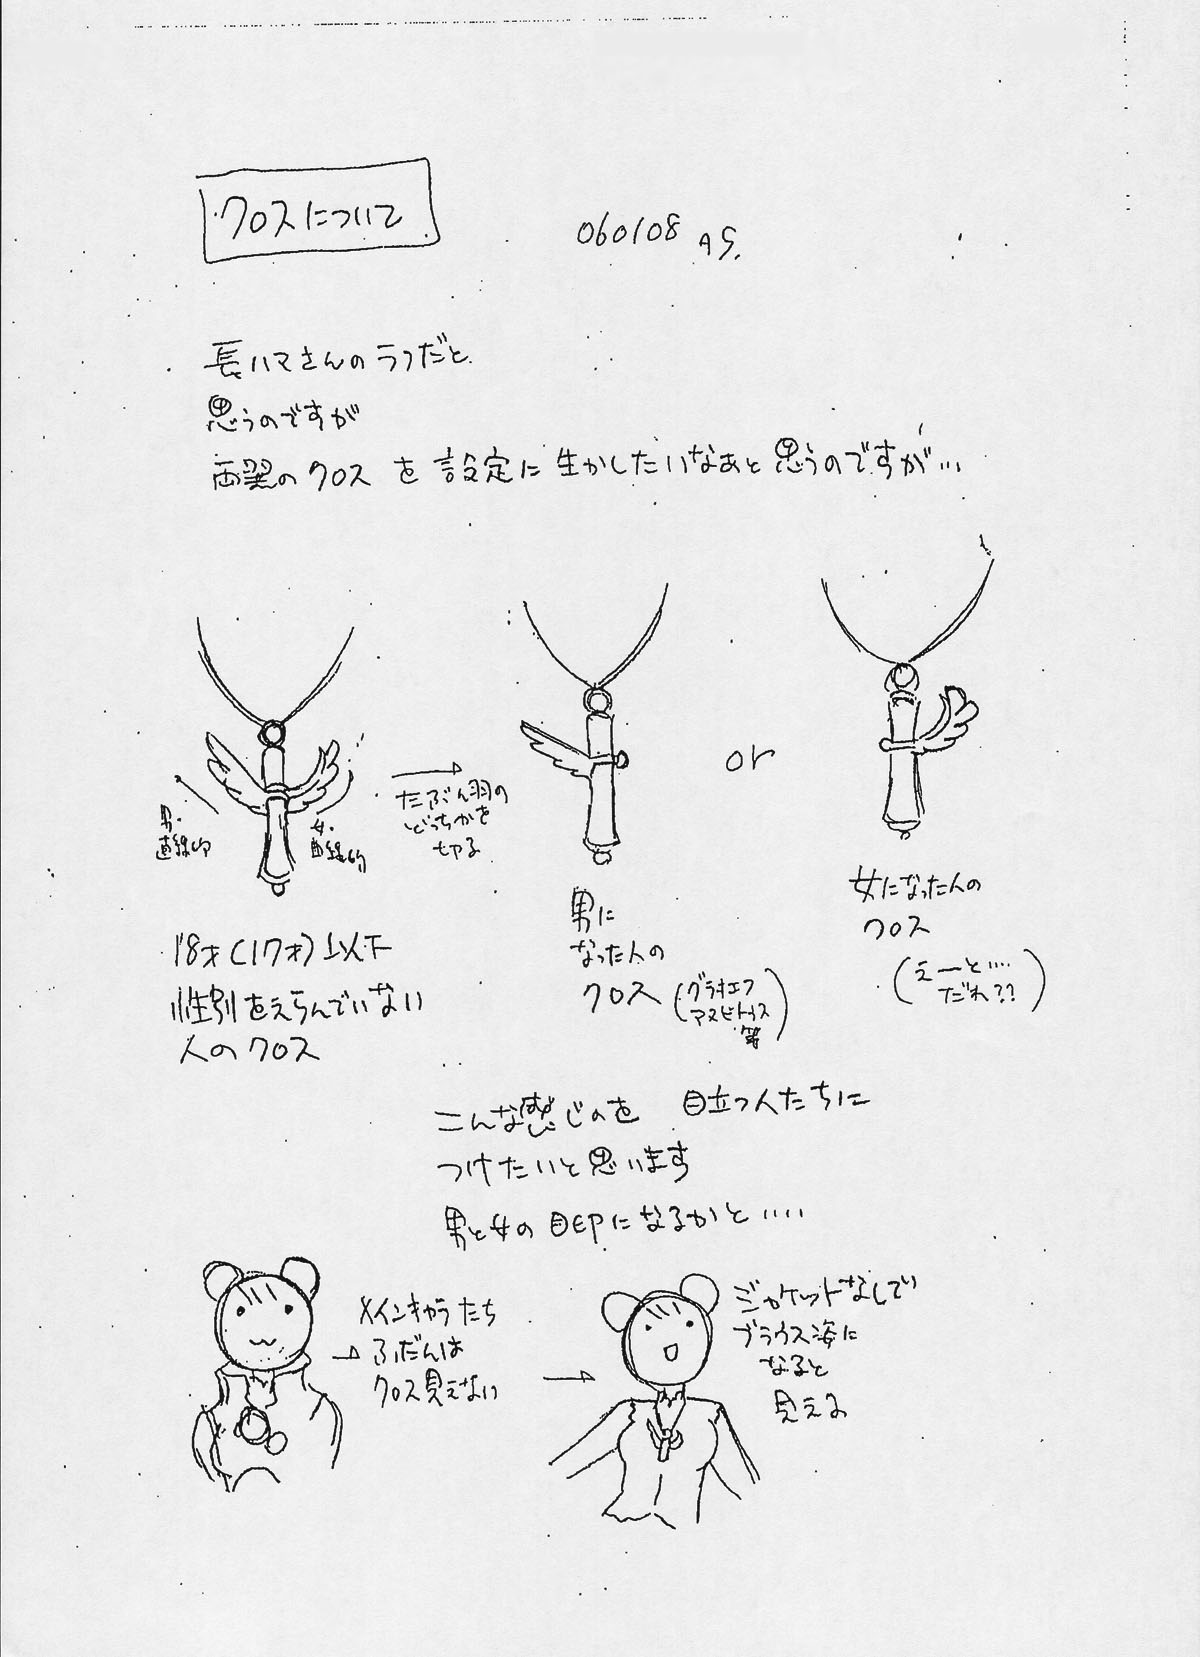 クロスについて
060108 AS.
長ハマさんのラフだと
思うのですが
両翼のクロスを設定に生かしたいなあと思うのですが…
男・
直線的
女・
曲線的
たぶん羽の
どっちかを
切る
or
18才(17才)以下
性別をえらんでいない
人のクロス
男に
なった人の
クロス
(グラギエフ
アヌビトゥス
等)
女になった人の
クロス
(えーと‥‥
だれ??)
こんな感じのを 目立つ人たちに
つけたいと思います
男と女の目印になるかと‥‥
メインキャラたち
ふだんは
クロス見えない
ジャケットなしで
ブラウス姿に
なると
見える